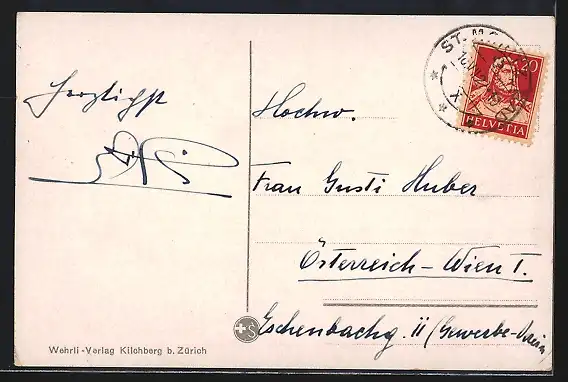 Herzlichst
Hochw.
Frau Gusti Huber
Österreich - Wien I.
Eschenbachg. 11 (Gewerbe-Verein
Wehrli-Verlag Kilchberg b. Zürich
ST. M
20
HELVETIA
S